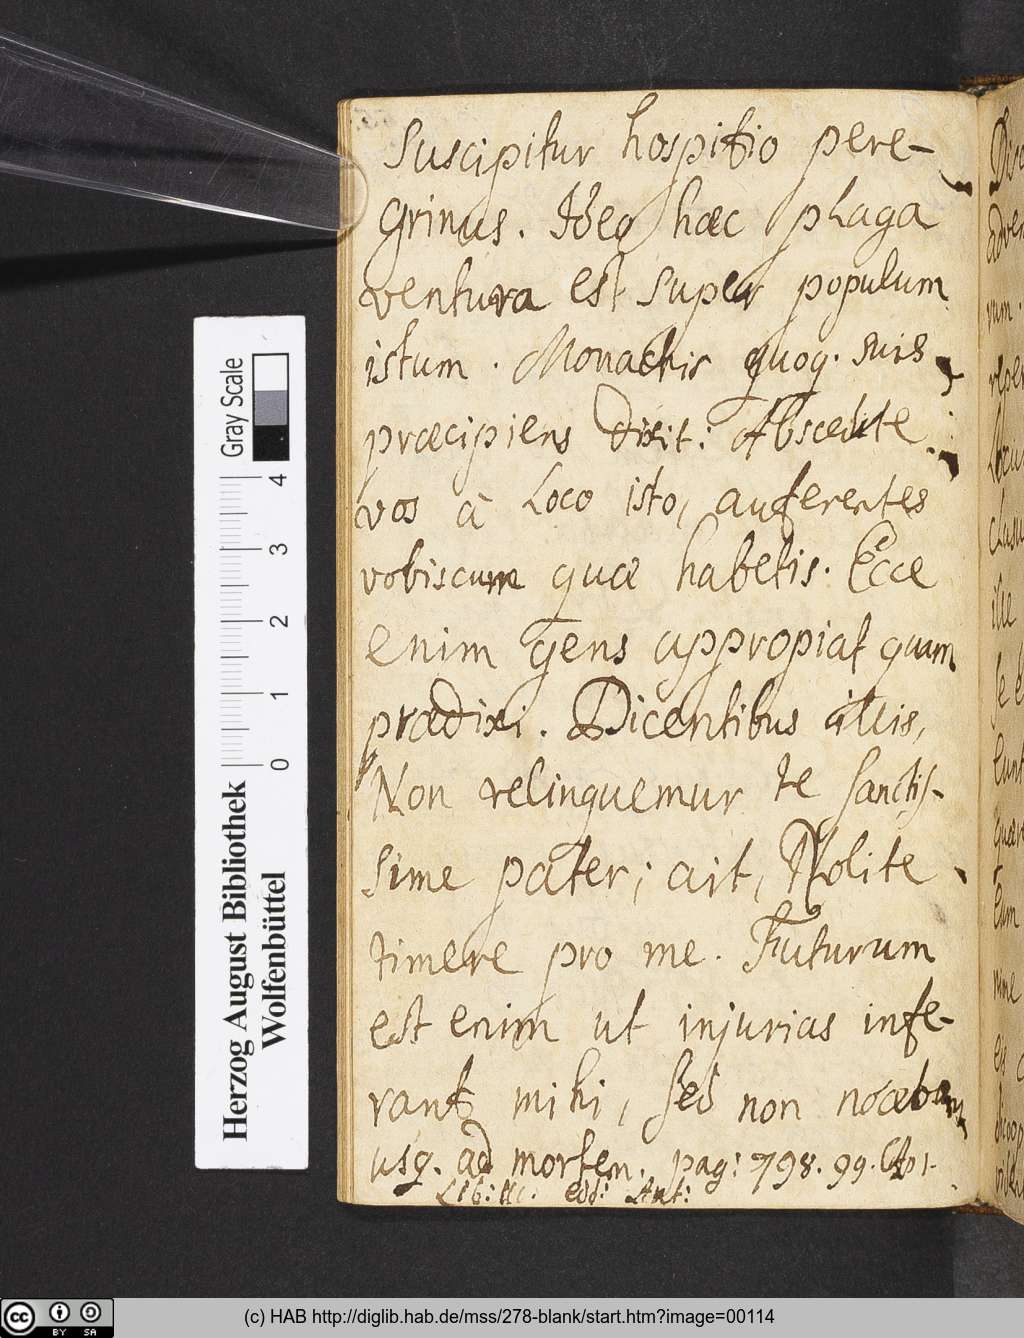 Suscipitur hospitio pere-
grinus. Ideo hæc plaga
ventura est super populum
istum. Monachis quoq. suis
præcipiens dixit: Abscedite
vos à loco isto, auferentes
vobiscum quæ habetis. Ecce
enim gens appropiat quam
prædixi. Dicentibus illis,
Non relinquemur te sanctis-
sime pater; ait, Nolite
timere pro me. Futurum
est enim ut injurias infe-
rant mihi, sed non nocebunt
usq. ad mortem. pag: 798. 99.
Lib: edd: Ant:
Herzog August Bibliothek
Wolfenbüttel
Gray Scale
0 1 2 3 4
cc BY SA
(c) HAB http://diglib.hab.de/mss/278-blank/start.htm?image=00114